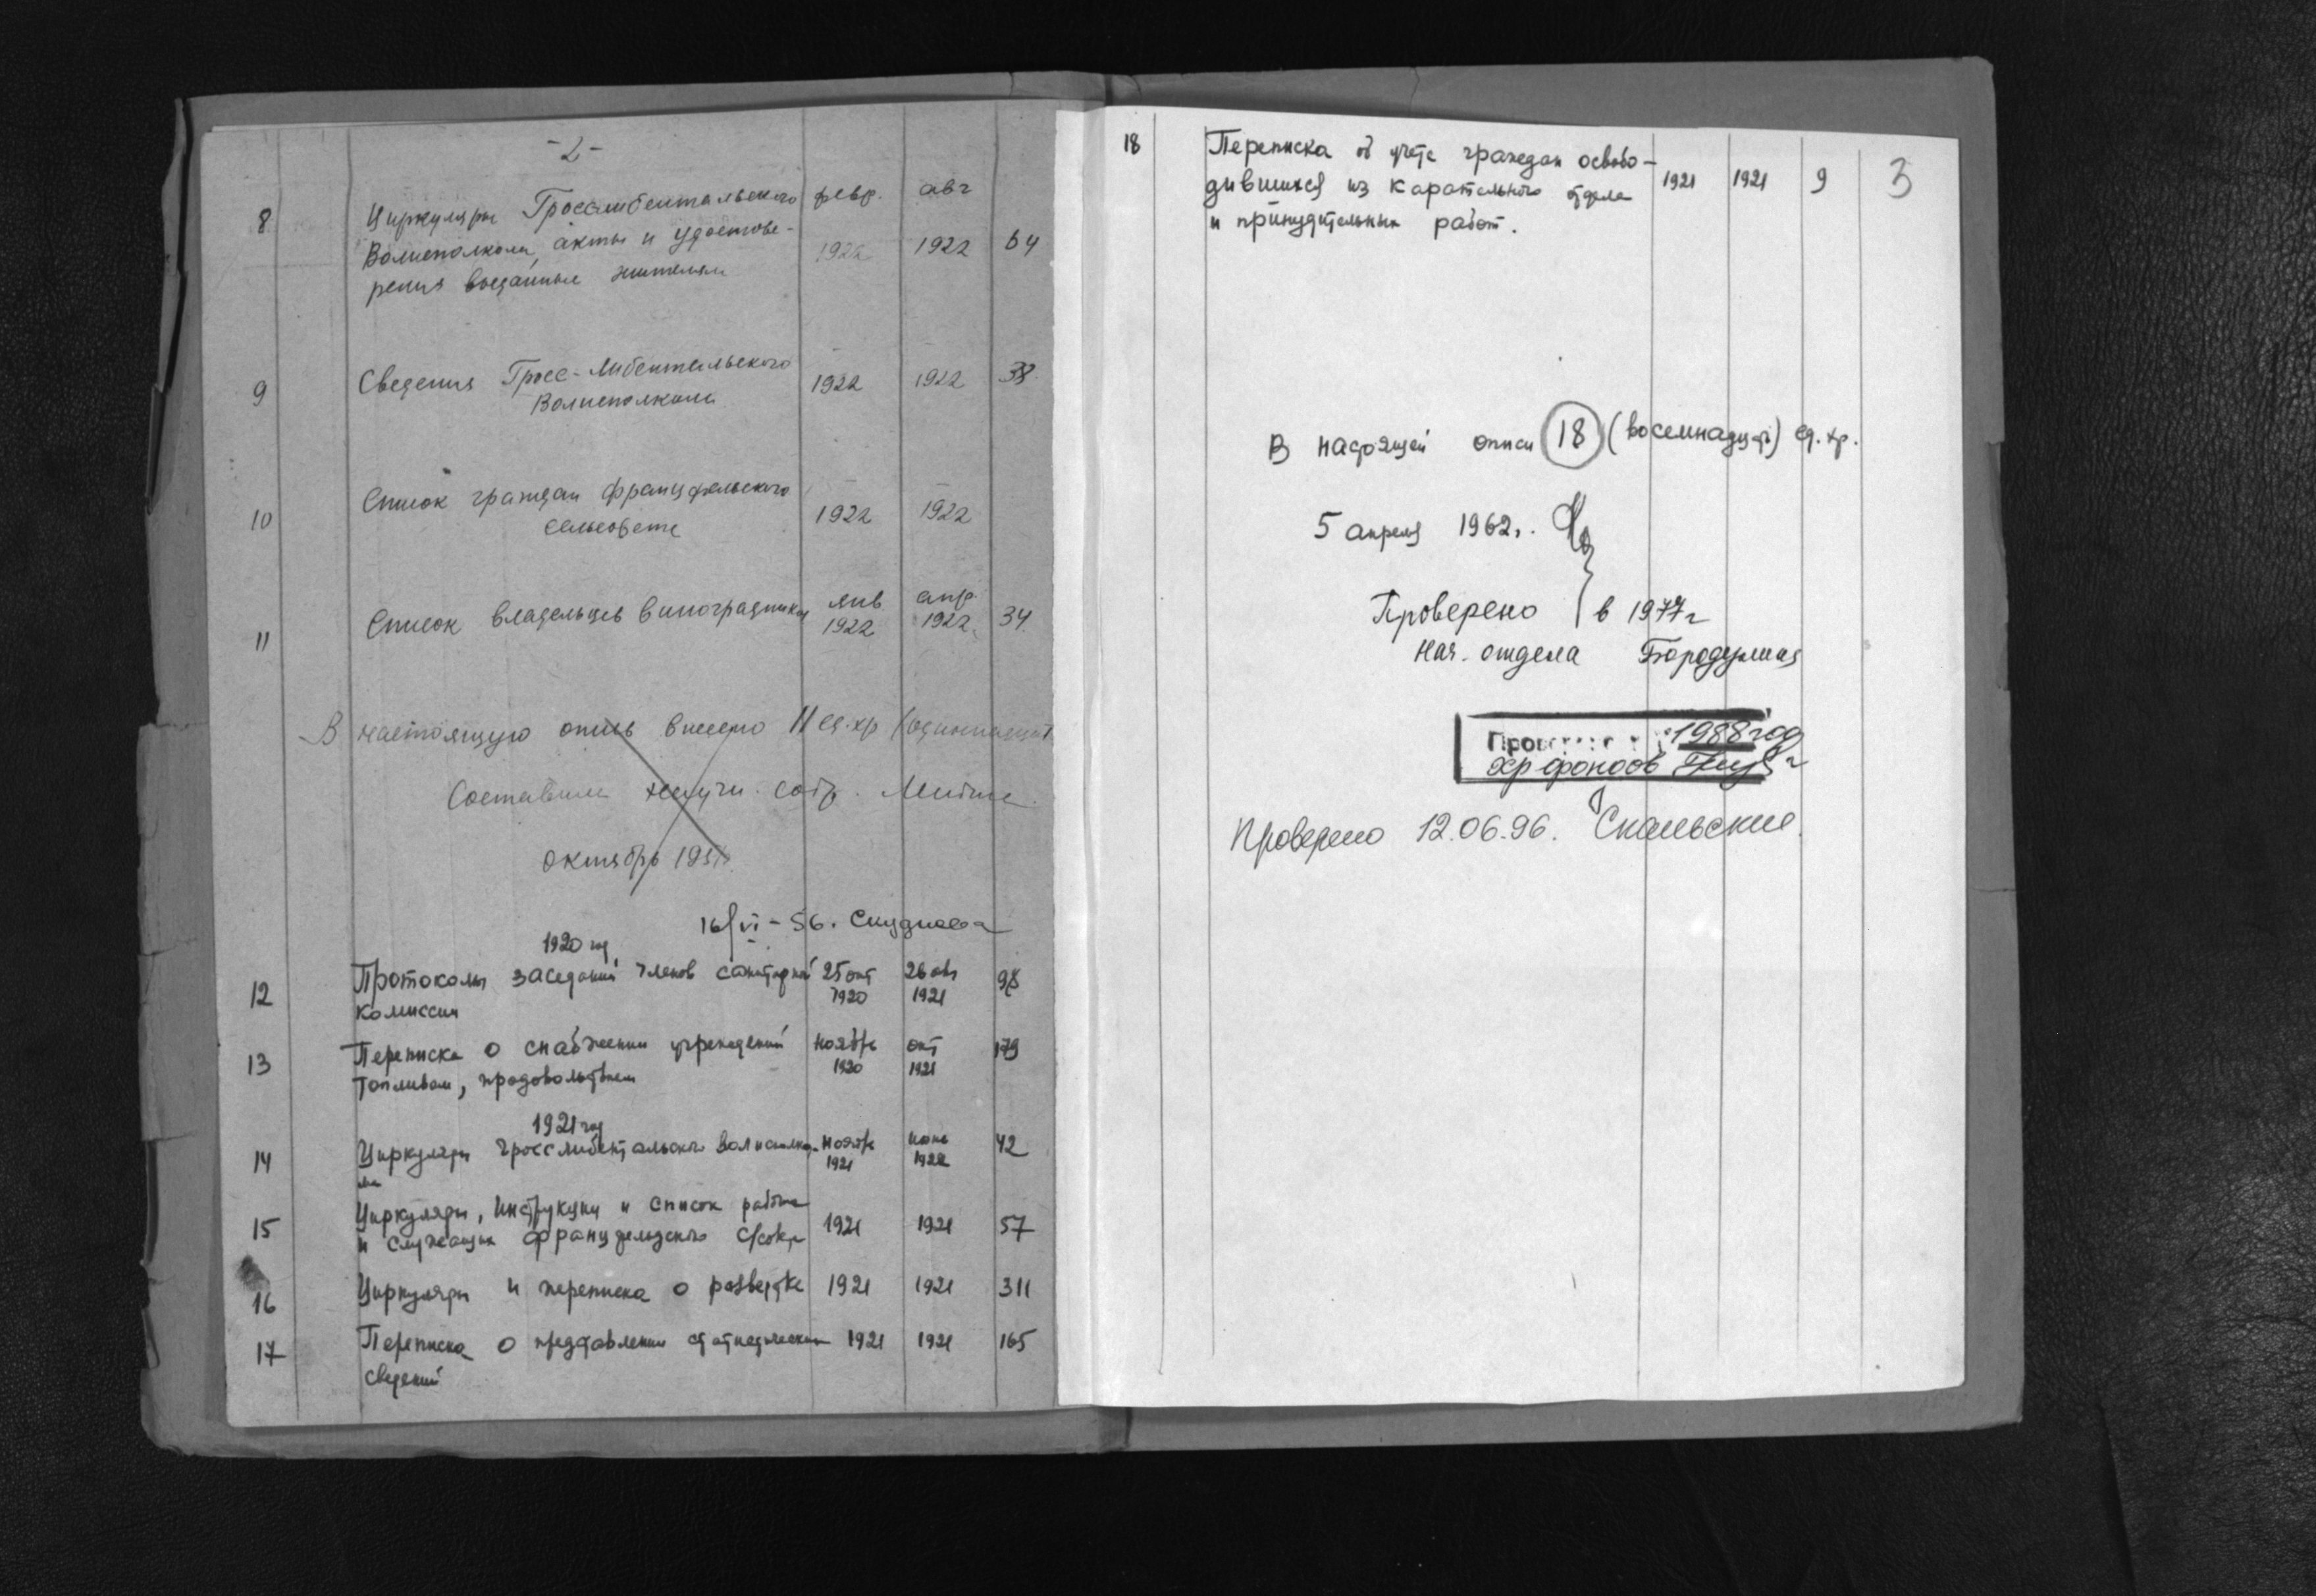 -2-
8 Циркуляры Гроссмибентальского февр. авг
Волисполкома, акты и удостове- 1922 1922 64
рения выданные жителям
9 Сведения Гросс-Либентальского 1922 1922 38
Волисполкома
10 Список граждан Францфельского 1922 1922
сельсовета
11 Список владельцев виноградников янв. 1922 апр. 1922 34
В настоящую опись внесено 11 ед.хр (одиннадцат
Составила научн. сотр.
октябрь 195
16/VI-56. Скуднова
1920 год
12 Протоколы заседаний членов санитарной 25 окт 1920 26 авг 1921 98
комиссии
13 Переписка о снабжении учреждений ноябрь 1920 окт 1921 179
топливом, продовольствием
1921 год
14 Циркуляры Гросслибентальского волисполко- ноябрь 1921 июнь 1922 42
ма
15 Циркуляры, инструкции и список рабочих
и служащих Францфельдского с/совета 1921 1921 57
16 Циркуляры и переписка о разверстке 1921 1921 311
17 Переписка о представлении статистических 1921 1921 165
сведений
18 Переписка об учете граждан освобо- 1921 1921 9 3
дившихся из карательного отдела
и принудительных работ.
В настоящей описи 18 (восемнадцать) ед. хр.
5 апреля 1962г.
Проверено в 1977г
Нач. отдела
1988 год
хр фондов
Проверено 12.06.96.